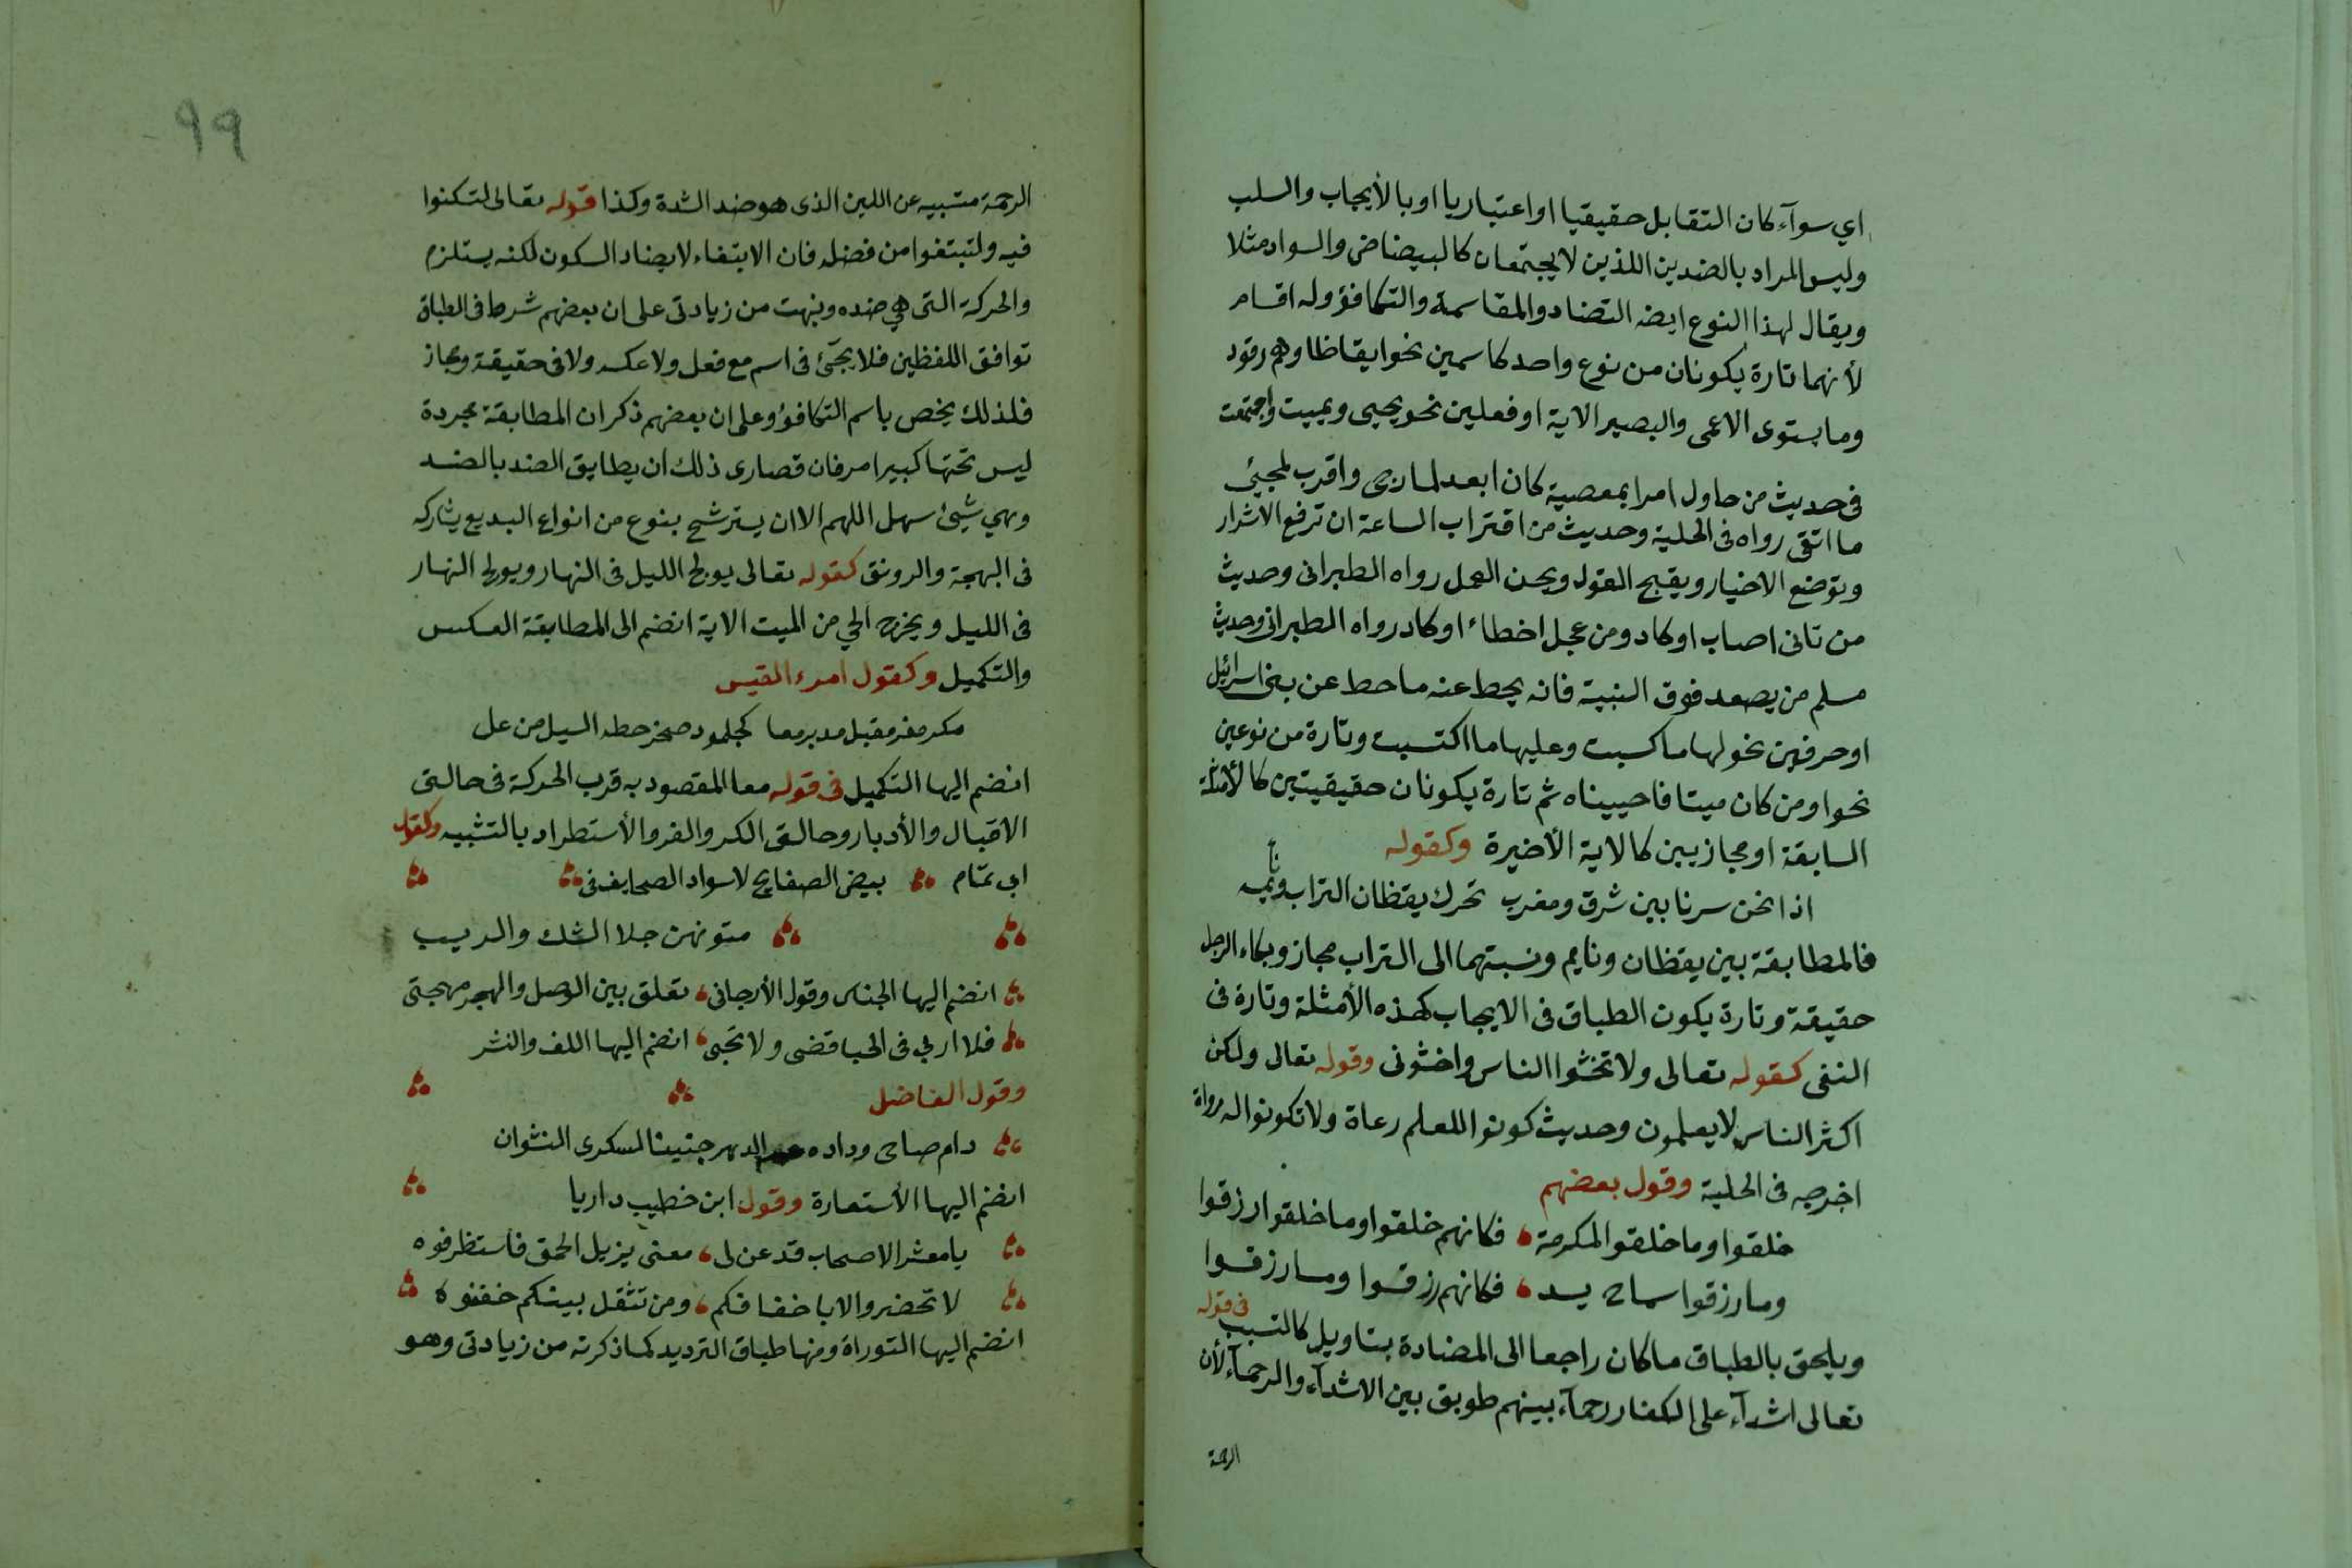 اي سوآء كان التقابل حقيقيا او اعتباريا او بالأيجاب والسلب
وليس المراد بالضدين اللذين لا يجتمعان كالبيضاض والسواد مثلا
ويقال لهذا النوع ايضه التضاد والمقاسمة والتكافؤ وله اقسام
لأنهما تارة يكونان من نوع واحد كاسمين نحو ايقاظا وهم رقود
وما يستوى الاعمى والبصير الاية او فعلين نحو يحيى ويميت واجتمعت
فى حديث من حاول امرا بمعصية كان ابعد لما رجى واقرب لمجيئ
ما اتقى رواه فى الحلية وحديث من اقتراب الساعة ان ترفع الاشرار
وتوضع الاخيار ويقبح القول ويحسن العمل رواه الطبرانى وحديث
من تانى اصاب او كاد ومن عجل اخطاء او كاد رواه الطبرانى وحديث
مسلم من يصعد فوق النبية فانه يحط عنه ما حط عن بنى اسرائيل
او حرفين نحو لها ما كسبت وعليها ما اكتسبت وتارة من نوعين
نحو او من كان ميتا فاحييناه ثم تارة يكونان حقيقيتين كالأمثلة
السابقة او مجازيين كالاية الأخيرة وكقوله
اذا نحن سرنا بين شرق ومغرب تحرك يقظان التراب ونايمه
فالمطابقة بين يقظان ونايم ونسبتهما الى التراب مجاز وبكاء الرجل
حقيقة وتارة يكون الطباق فى الايجاب كهذه الأمثلة وتارة فى
النفى كقوله تعالى ولا تخشوا الناس واخشونى وقوله تعالى ولكن
اكثر الناس لا يعلمون وحديث كونوا للعلم رعاة ولا تكونوا له رواة
اخرجه فى الحلية وقول بعضهم
خلقوا وما خلقوا لمكرمة فكانهم خلقوا وما خلقوا رزقوا
وما رزقوا سماح يد فكانهم رزقوا وما رزقوا
ويلحق بالطباق ما كان راجعا الى المضادة بتاويل كالتسبب فى قوله
تعالى اشدآء على الكفار رحمآء بينهم طوبق بين الاشدآء والرحمآء لأن
الرحمة
٩٩
الرحمة متسببه عن اللين الذى هو ضد الشدة وكذا قوله تعالى لتسكنوا
فيه ولتبتغوا من فضله فان الابتغاء لا يضاد السكون لكنه يستلزم
والحركة التى هي ضده ونبهت من زيادتى على ان بعضهم شرط فى الطباق
توافق اللفظين فلا يجئ فى اسم مع فعل ولا عكسه ولا فى حقيقة ومجاز
فلذلك يخص باسم التكافؤ وعلى ان بعضهم ذكر ان المطابقة مجردة
ليس تحتها كبير امر فان قصارى ذلك ان يطابق الضد بالضد
وهي شيئ سهل اللهم الا ان يترشح بنوع من انواع البديع يشاركه
فى البهجة والرونق كقوله تعالى يولج الليل فى النهار ويولج النهار
فى الليل ويخرج الحي من الميت الاية انضم الى المطابقة العكس
والتكميل وكقول امرء القيس
مكر مفر مقبل مدبر معا كجلمود صخر حطه السيل من عل
انضم اليها التكميل فى قوله معا المقصود به قرب الحركة فى حالتى
الاقبال والأدبار وحالتى الكر والفر والأستطراد بالتشبيه وكقول
ابى تمّام بيض الصفايح لا سواد الصحايف فى
متونهن جلا الشك والريب
انضم اليها الجناس وقول الأرجانى تعلق بين الوصل والهجر مهجتى
فلا اربي فى الحب اقضى ولا نحبى انضم اليها اللف والنشر
وقول الفاضل
دام صاحى وداده الدهر جنينا لسكرى النشوان
انضم اليها الأستعارة وقول ابن خطيب داريا
يا معشر الاصحاب قد عن لى معنى يزيل الحمق فاستظرفوه
لا تحضروا الا باخفافكم ومن تثقل بينكم خففوه
انضم اليها التوراة ومنها طباق الترديد كما ذكرته من زيادتى وهو